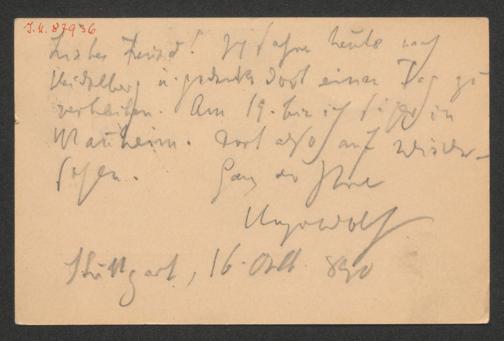 I.N. 87936
Liebes Freund! Ich fahre heute nach
Heidelberg u. gedenke dort einen Tag zu
verbleiben. Am 19. bin ich sicher in
Mannheim. Dort also auf Wieder-
sehen. Ganz der Ihre
Hugo Wolf
Stuttgart, 16. Okt. 890